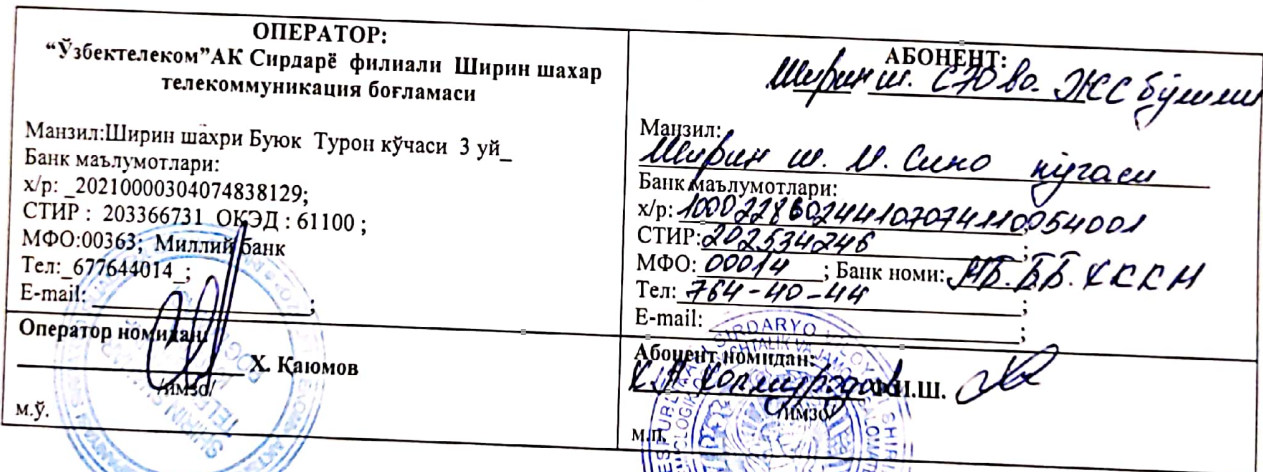 ОПЕРАТОР:
“Ўзбектелеком”АК Сирдарё филиали Ширин шахар
телекоммуникация боғламаси
Манзил:Ширин шаҳри Буюк Турон кўчаси 3 уй_
Банк маълумотлари:
х/р: _20210000304074838129;
СТИР : 203366731 ОКЭД : 61100 ;
МФО:00363; Миллий банк
Тел:_677644014_;
E-mail: ;
Оператор номидан:
Х. Қаюмов
/имзо/
м.ў.
АБОНЕНТ:
Ширин ш. СЭО ва ЖС бўлими
Манзил:
Ширин ш. И. Сино кўчаси
Банк маълумотлари:
х/р: 100022860244107074110054001
СТИР: 202534246 ;
МФО: 00014 ; Банк номи: ББ. ХККМ
Тел: 764-40-44 ;
E-mail: ;
Абонент номидан:
Ф.И.Ш.
/имзо/
м.п.
SIRDARYO